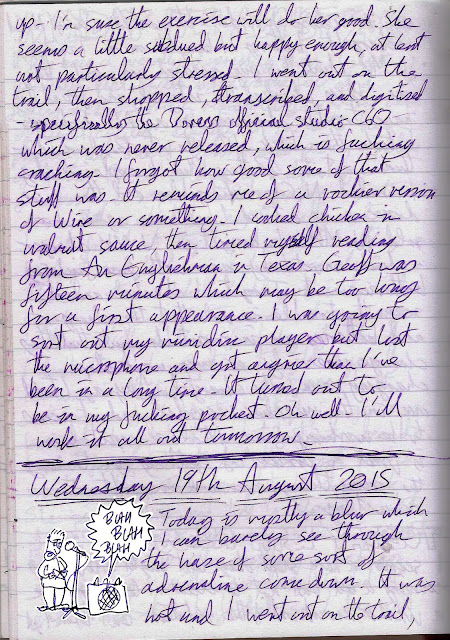 up - I'm sure the exercise will do her good. She
seems a little subdued but happy enough, at least
not particularly stressed. I went out on the
trail, then shopped, transcribed and digitised
- specifically the official studio C60
which was never released, which is fucking
cracking. I forgot how good some of that
stuff was. It reminds me of a rockier version
of Wire or something. I cooked chicken in
walnut sauce then timed myself reading
from An Englishman in Texas. Geoff was
fifteen minutes which may be too long
for a first appearance. I was going to
sort out my minidisc player but lost
the microphone and got angrier than I've
been in a long time. It turned out to
be in my fucking pocket. Oh well. I'll
work it all out tomorrow.
Wednesday 19th August 2015
BLAH
BLAH
BLAH
Today is mostly a blur which
I can barely see through
the haze of some sort of
adrenaline come down. It was
hot and I went out on the trail,